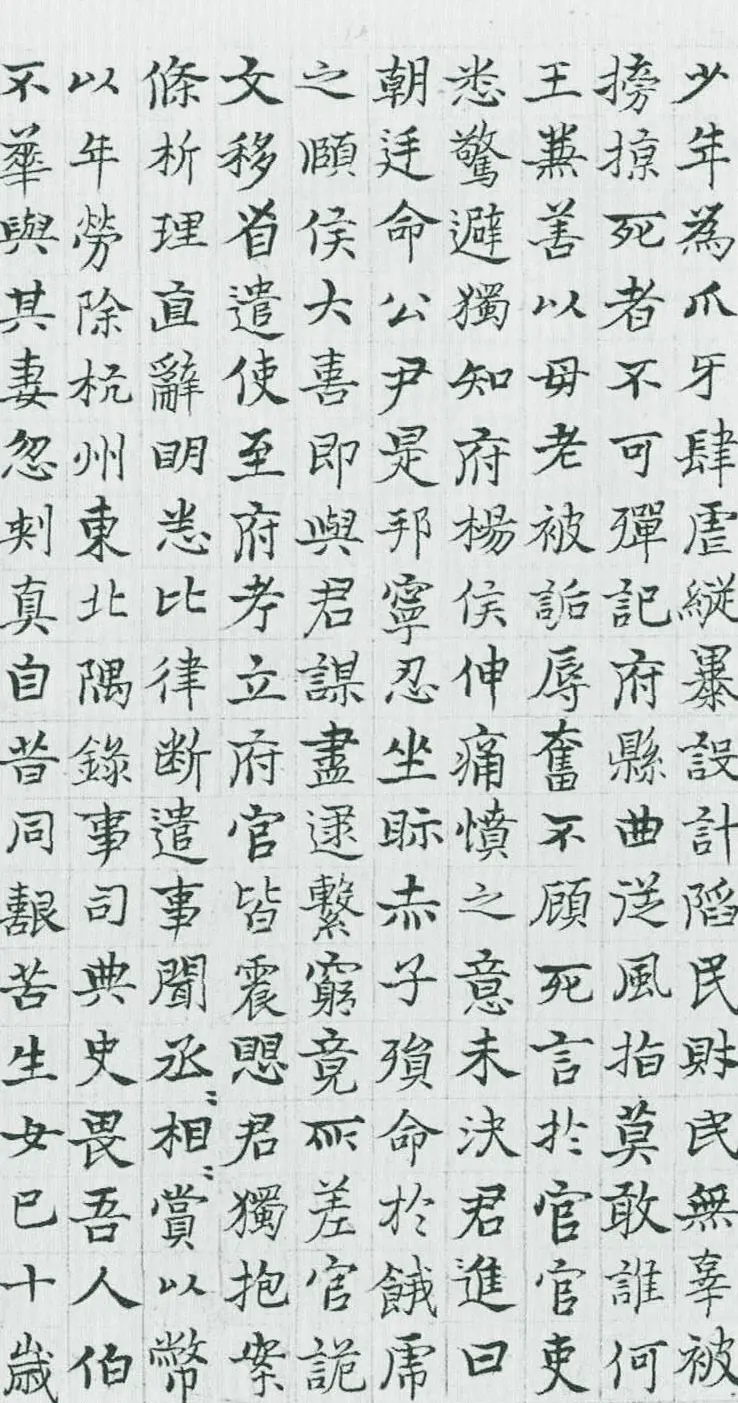 少年為爪牙肆虐縱暴設計陷民財民無辜被
搒掠死者不可殫記府縣曲從風指莫敢誰何
王兼善以母老被詬辱奮不顧死言於官官吏
悉驚避獨知府楊侯伸痛憤之意未決君進曰
朝廷命公尹是邦寧忍坐眎赤子殞命於餓虎
之頤侯大喜即與君謀盡逮繫窮竟所差官詭
文移省遣使至府考立府官皆震愳君獨抱案
條析理直辭明悉比律断遣事聞丞〻相〻賞以幣
以年勞除杭州東北隅錄事司典史畏吾人伯
不華與其妻忽剌真自昔同艱苦生女巳十歲